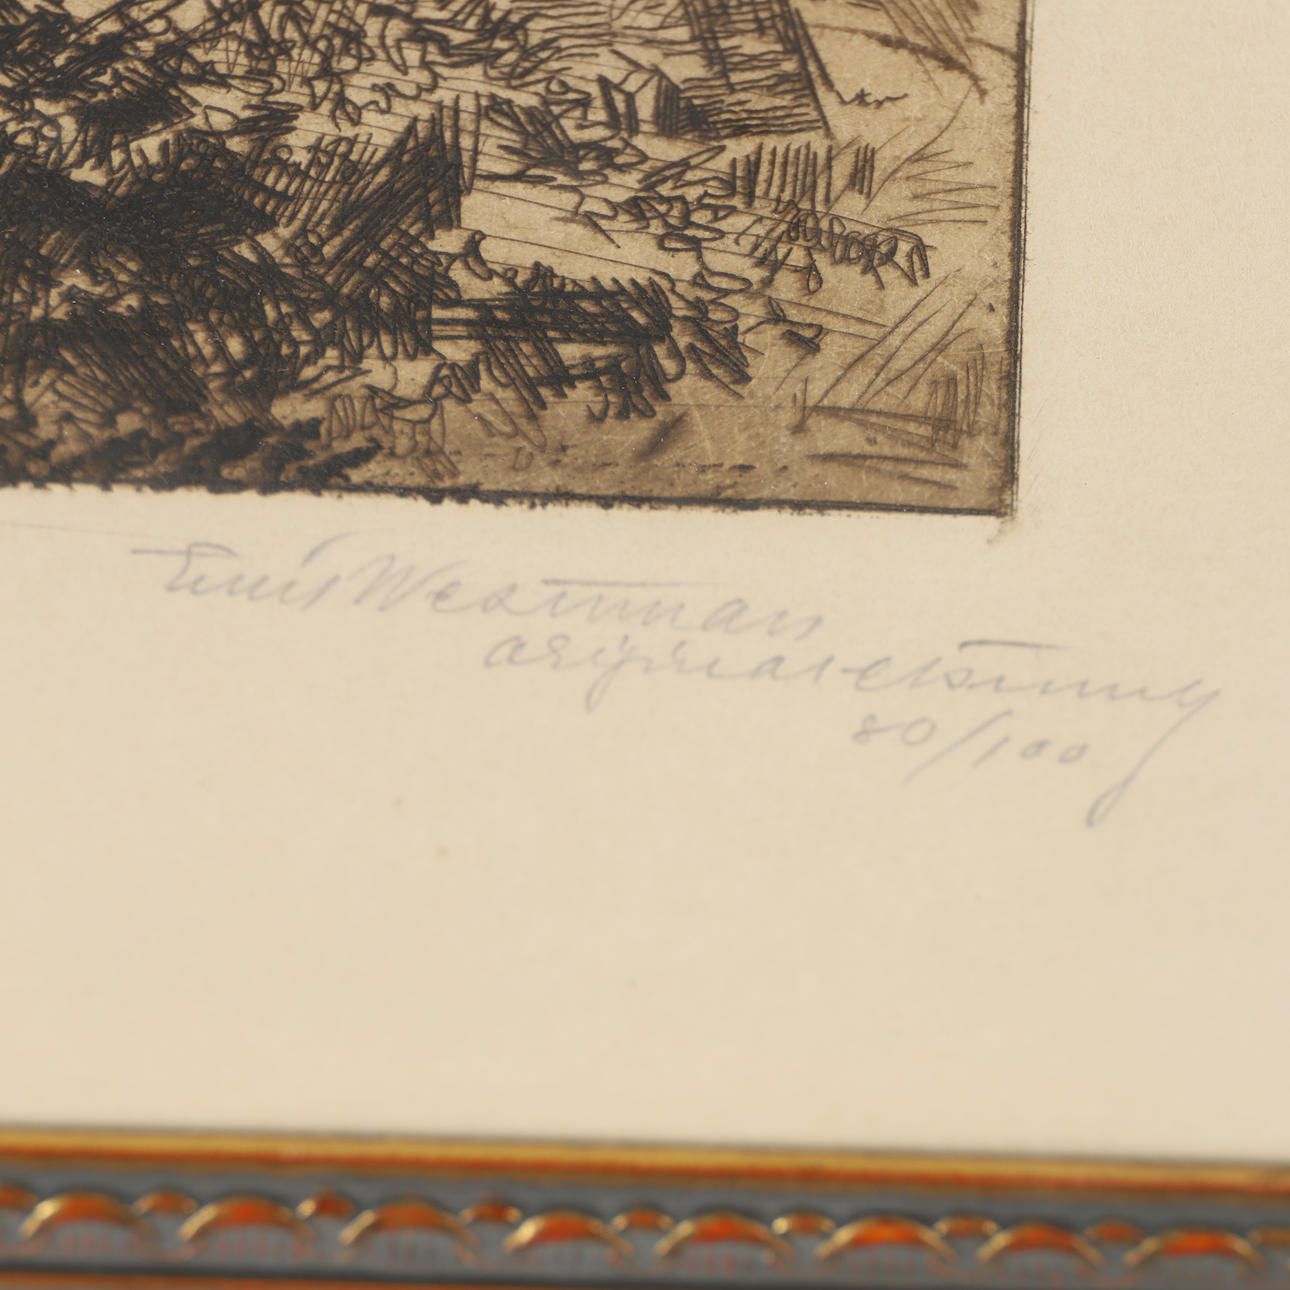 Emil Westman
original etsning
80/100